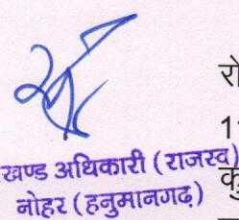 रो
1
खण्ड अधिकारी (राजस्व)
नोहर (हनुमानगढ़)